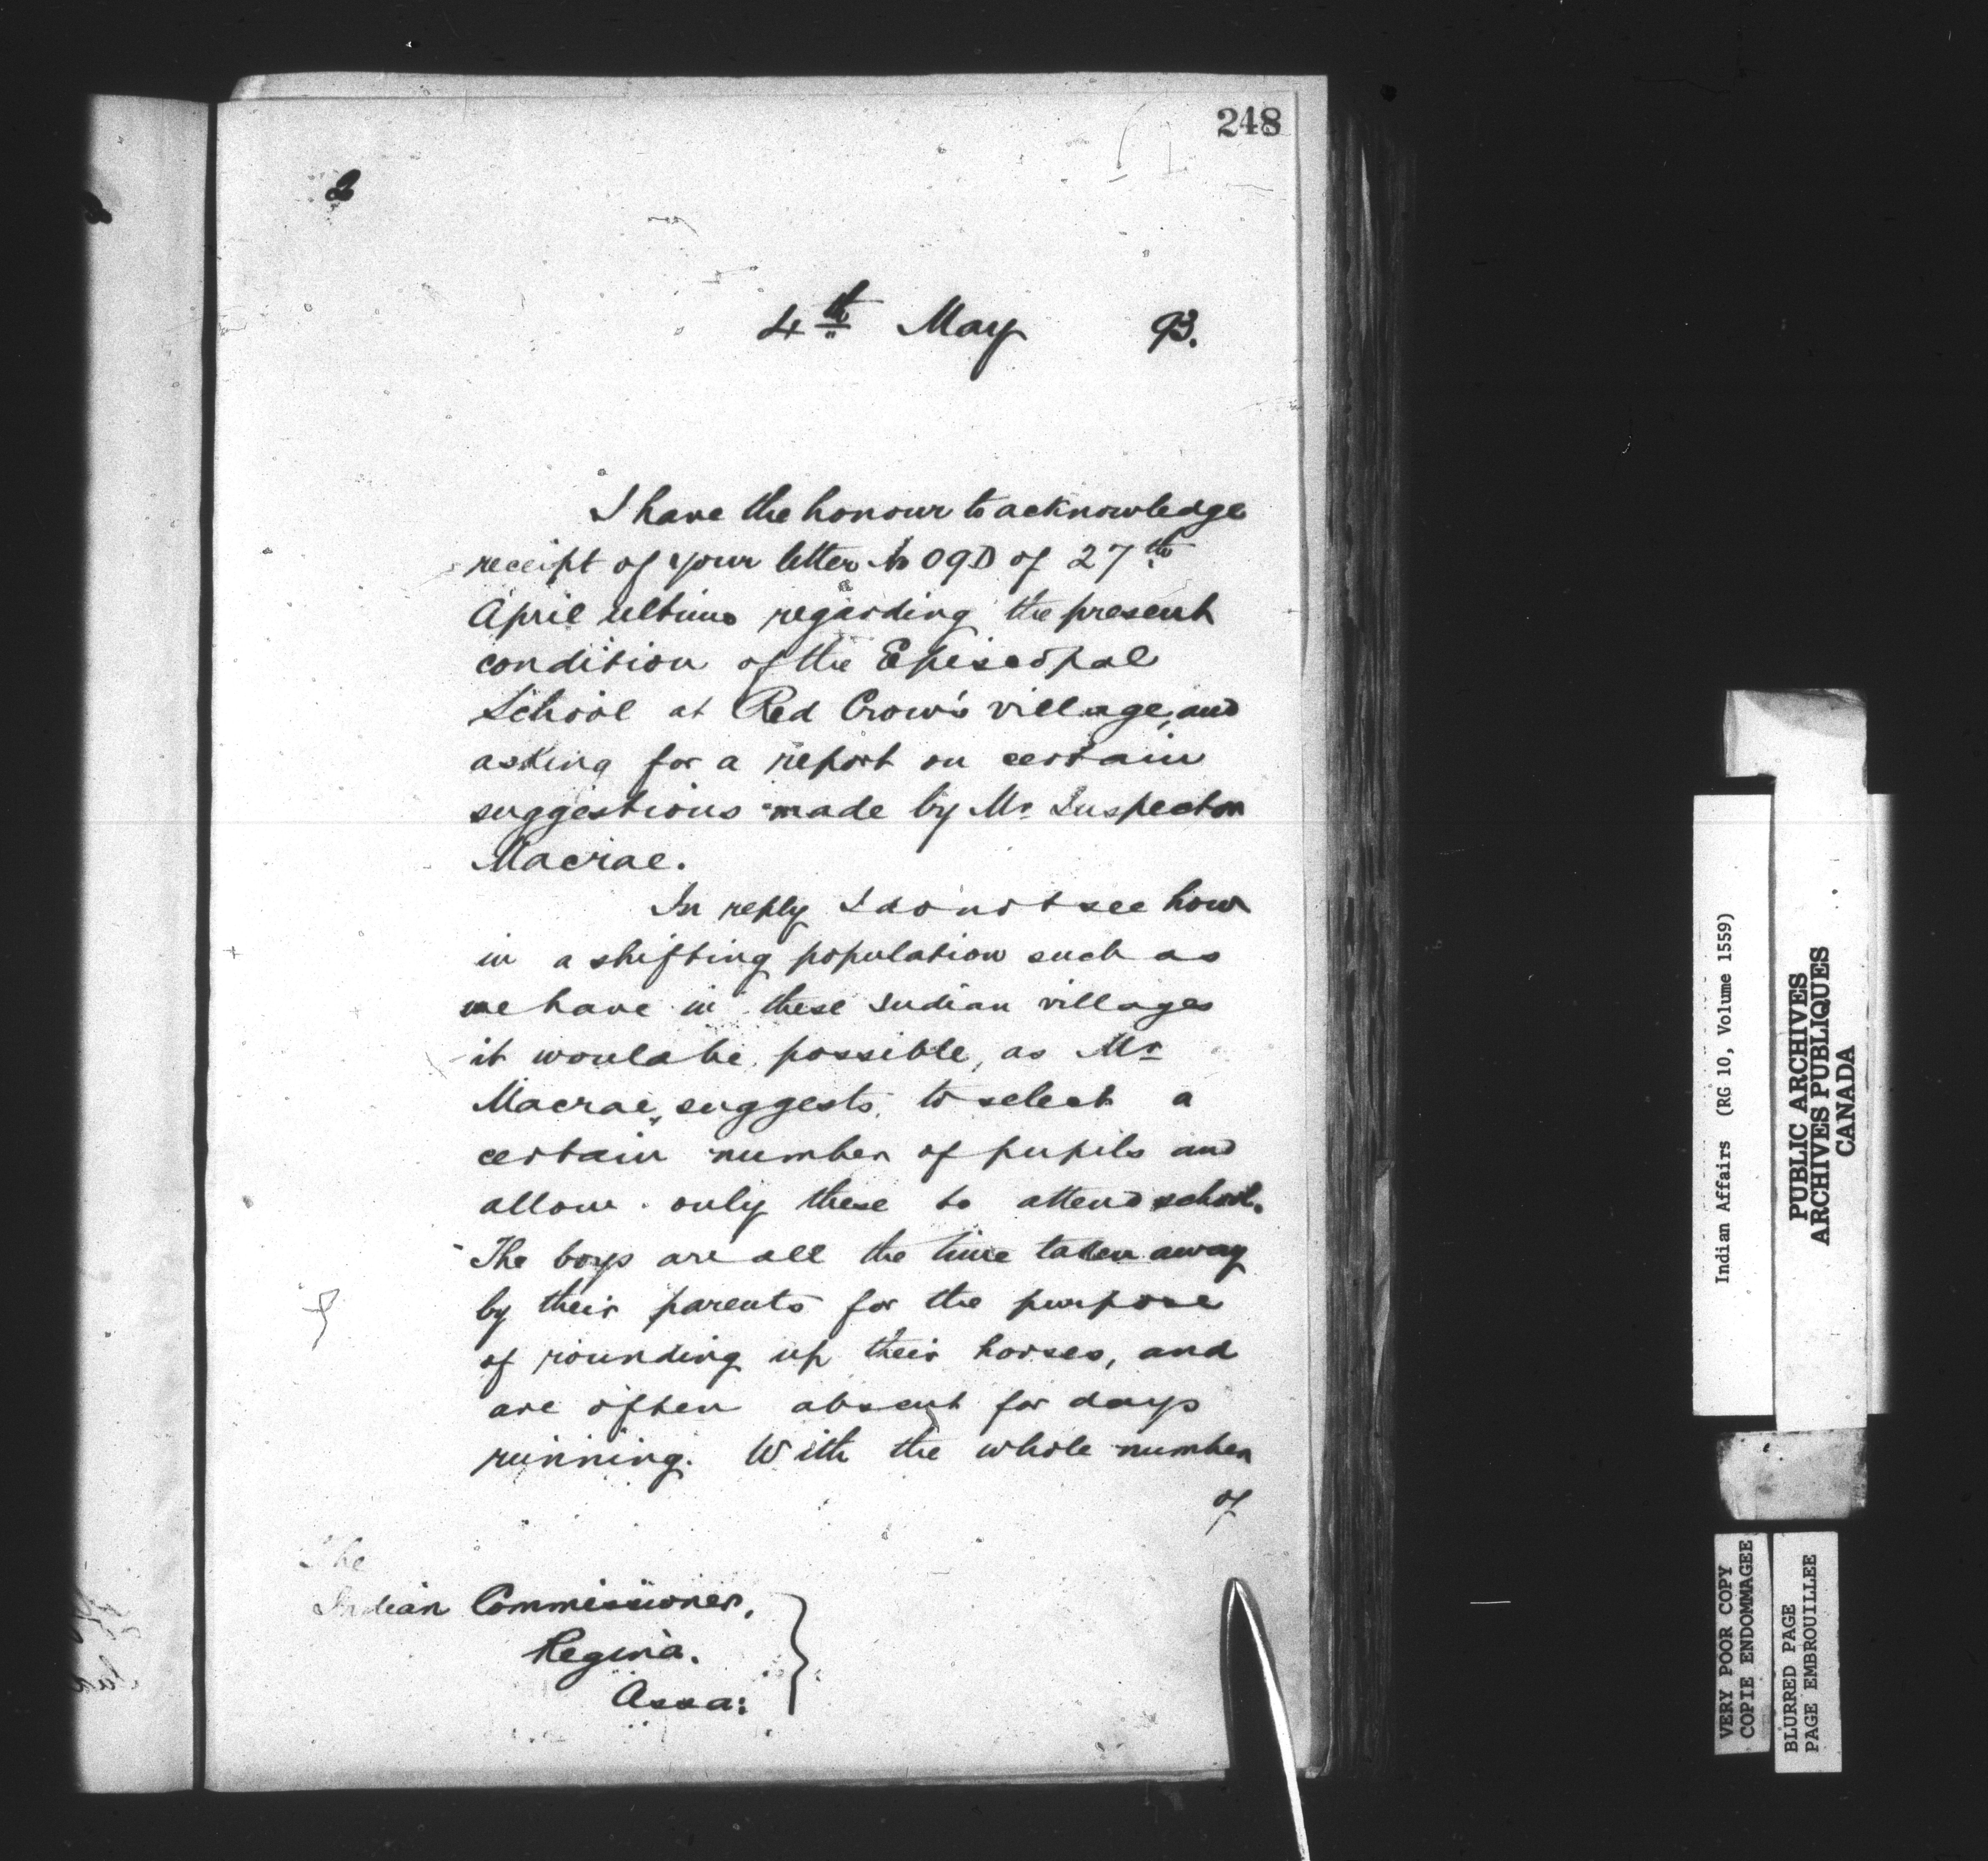 248
2
4th May 93.
I have the honour to acknowledge
receipt of your letter No 09D of 27th
April ultimo regarding the present
condition of the Episcopal
School at Red Crow's village, and
asking for a report on certain
suggestions made by Mr Inspector
Macrae.
In reply I do not see how
in a shifting population such as
we have in these Indian villages
it would be possible, as Mr
Macrae, suggests, to select a
certain number of pupils and
allow only these to attend school.
The boys are all the time taken away
by their parents for the purpose
of rounding up their horses, and
are often absent for days
running. With the whole number
of
The
Indian Commissioner,
Regina.
Assa:
Indian Affairs (RG 10, Volume 1559)
PUBLIC ARCHIVES
ARCHIVES PUBLIQUES
CANADA
VERY POOR COPY
COPIE ENDOMMAGEE
BLURRED PAGE
PAGE EMBROUILLEE